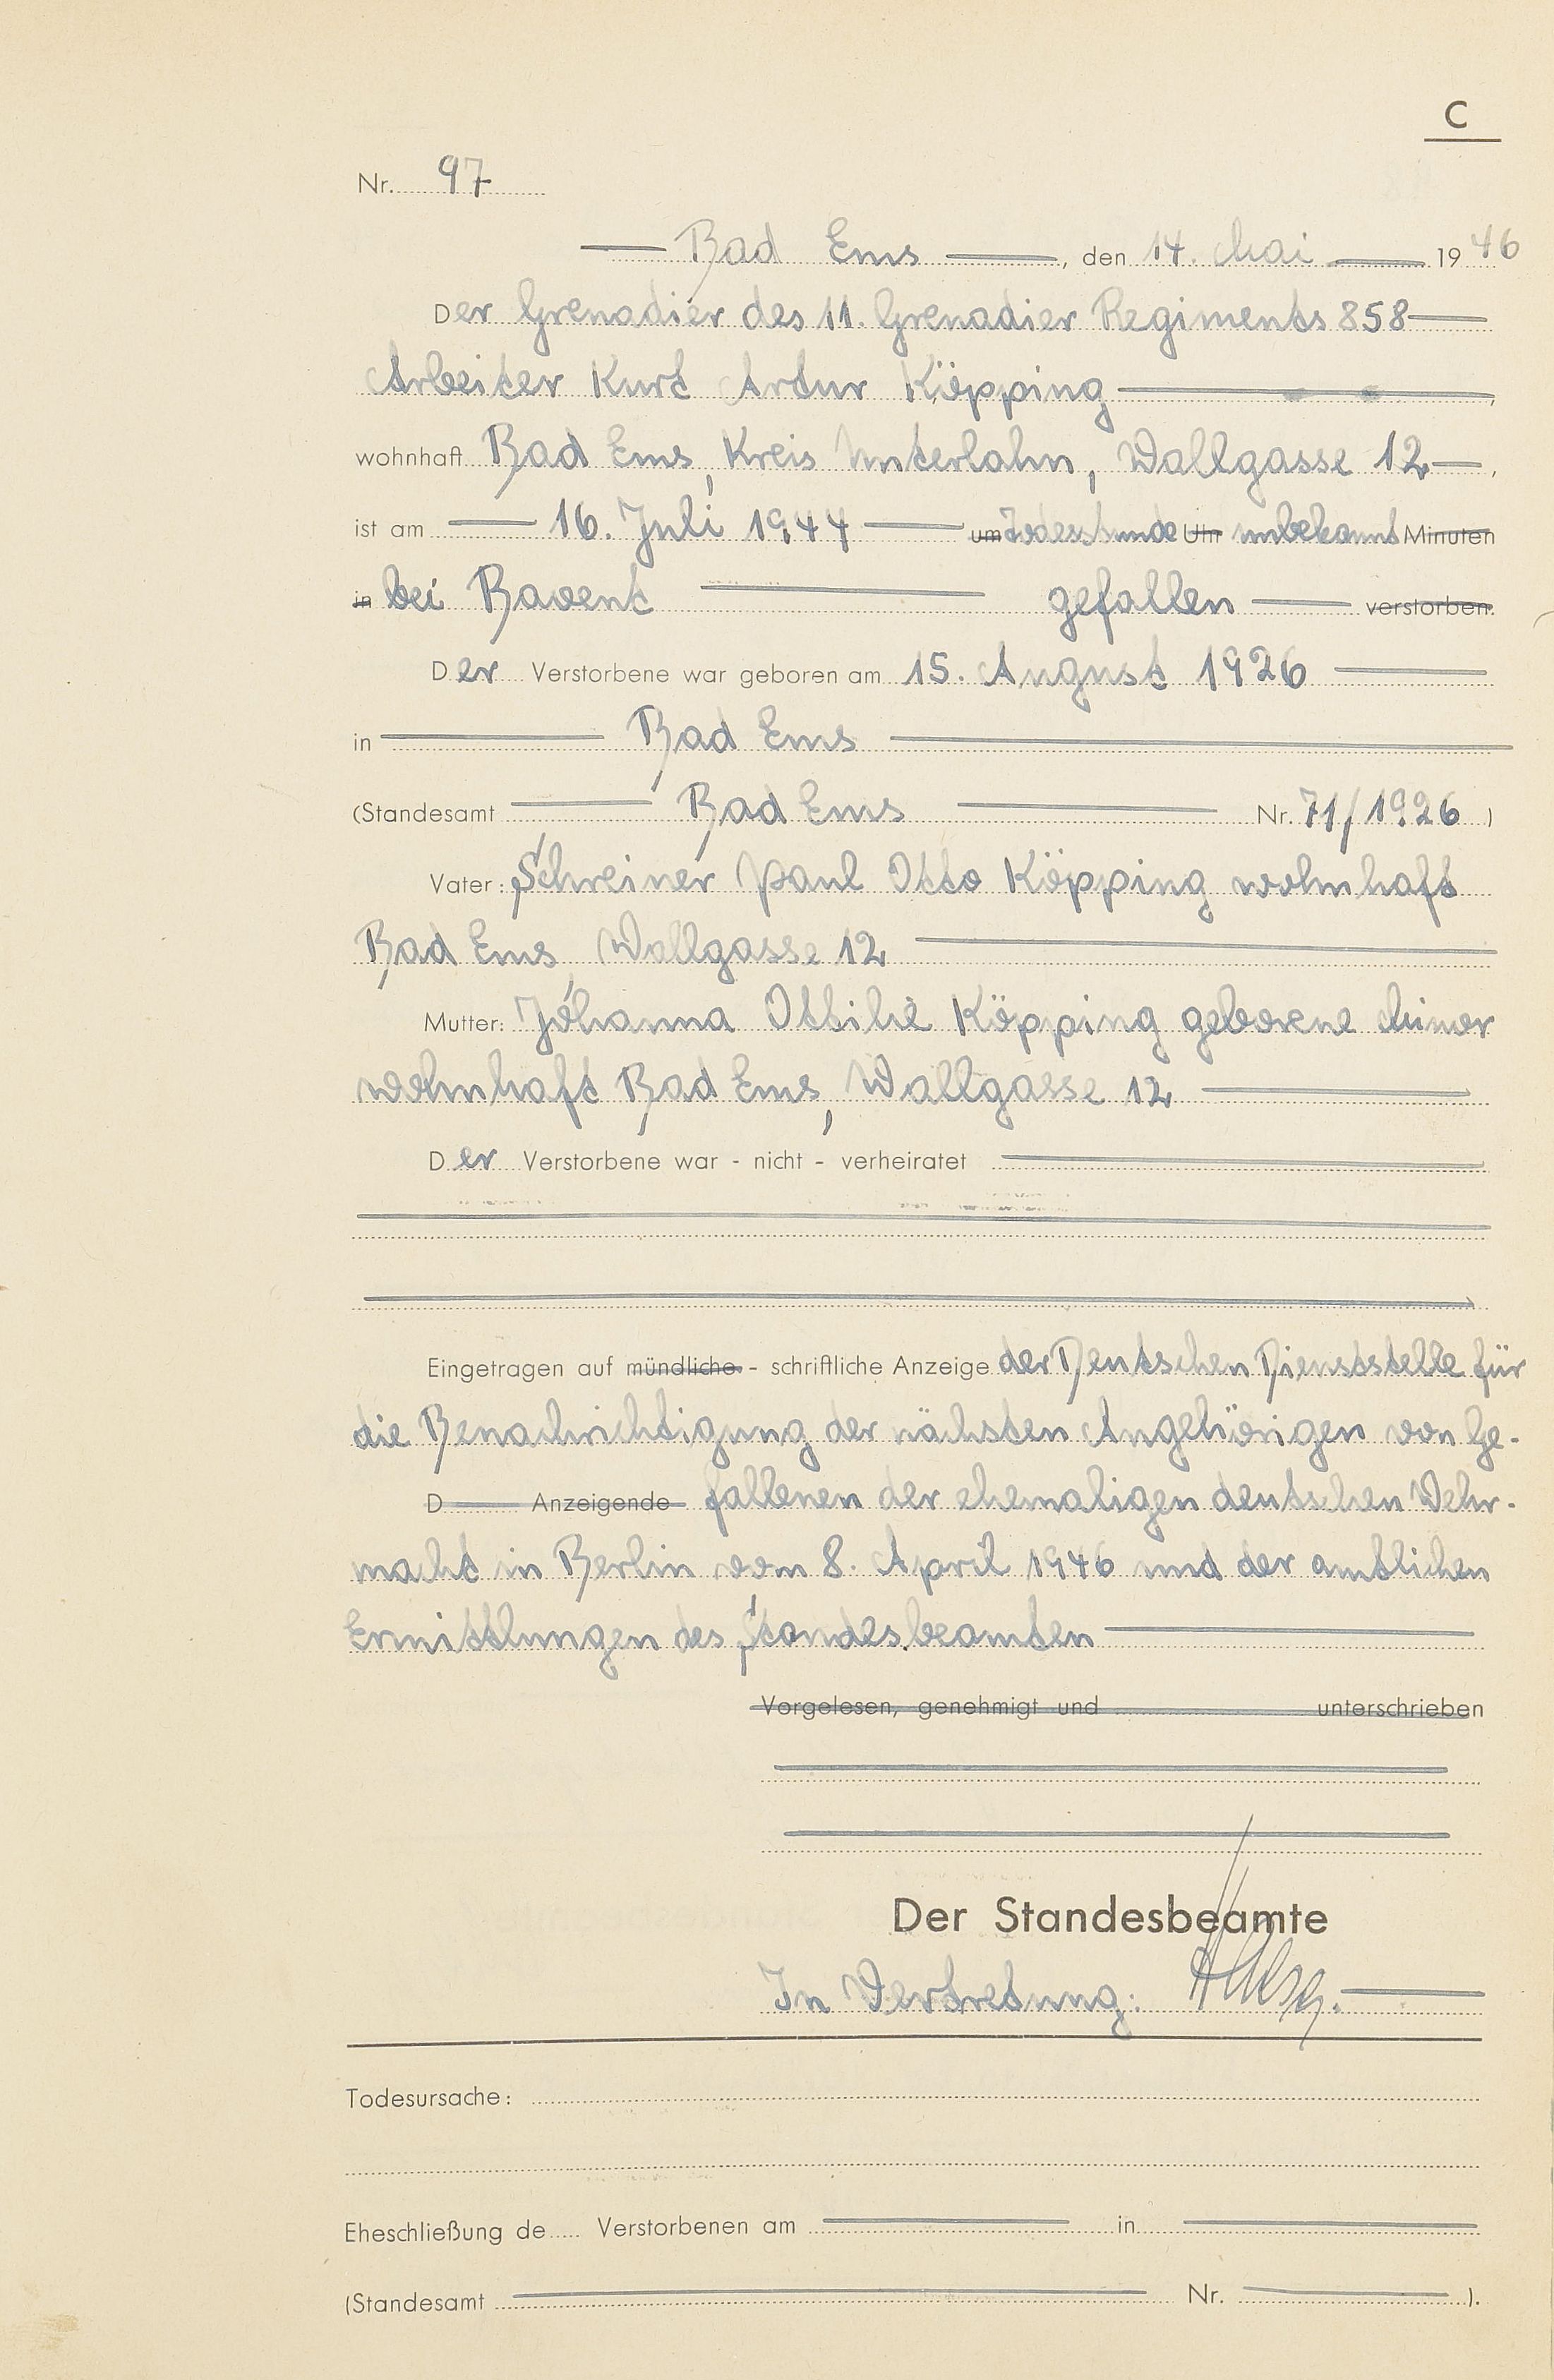 C
Nr. 97
Bad Ems, den 14. Mai 1946
Der Grenadier des 11. Grenadier Regiments 858
Arbeiter Kurt Artur Köpping,
wohnhaft Bad Ems, Kreis Unterlahn, Wallgasse 12,
ist am 16. Juli 1944 um Todesstunde Uhr unbekannt Minuten
in bei Bavent gefallen verstorben.
Der Verstorbene war geboren am 15. August 1926
in Bad Ems
(Standesamt Bad Ems Nr. 71/1926)
Vater: Schreiner Paul Otto Köpping wohnhaft
Bad Ems, Wallgasse 12
Mutter: Johanna Ottilie Köpping geborene Minor
wohnhaft Bad Ems, Wallgasse 12
Der Verstorbene war - nicht - verheiratet
Eingetragen auf mündliche - schriftliche Anzeige der Deutschen Dienststelle für
die Benachrichtigung der nächsten Angehörigen von Ge-
D Anzeigende fallenen der ehemaligen deutschen Wehr-
macht in Berlin vom 8. April 1946 und der amtlichen
Ermittlungen des Standesbeamten
Vorgelesen, genehmigt und unterschrieben
Der Standesbeamte
In Vertretung:
Todesursache:
Eheschließung de Verstorbenen am in
(Standesamt Nr. ).